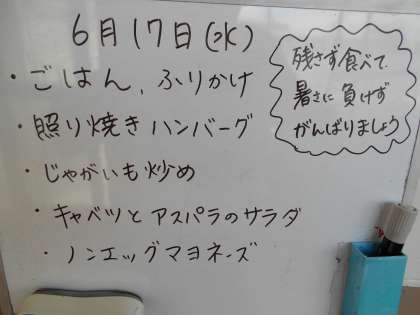 6月17日(水)
・ごはん、ふりかけ
・照り焼きハンバーグ
・じゃがいも炒め
・キャベツとアスパラのサラダ
・ノンエッグマヨネーズ
残さず食べて、
暑さに負けず
がんばりましょう